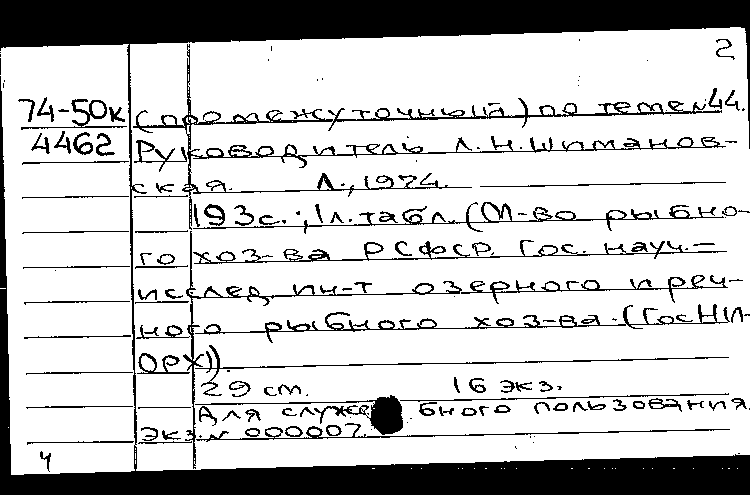 2
74-50к (промежуточный) по теме №44.
4462 Руководитель Л.Н.Шиманов-
ская. Л., 1974.
193с.; 1л. табл. (М-во рыбно-
го хоз-ва РСФСР. Гос. науч.-
исслед. ин-т озерного и реч-
ного рыбного хоз-ва. (ГосНИ-
ОРХ)).
29 см. 16 экз.
Для служебного пользования.
Экз.№ 000007.
4